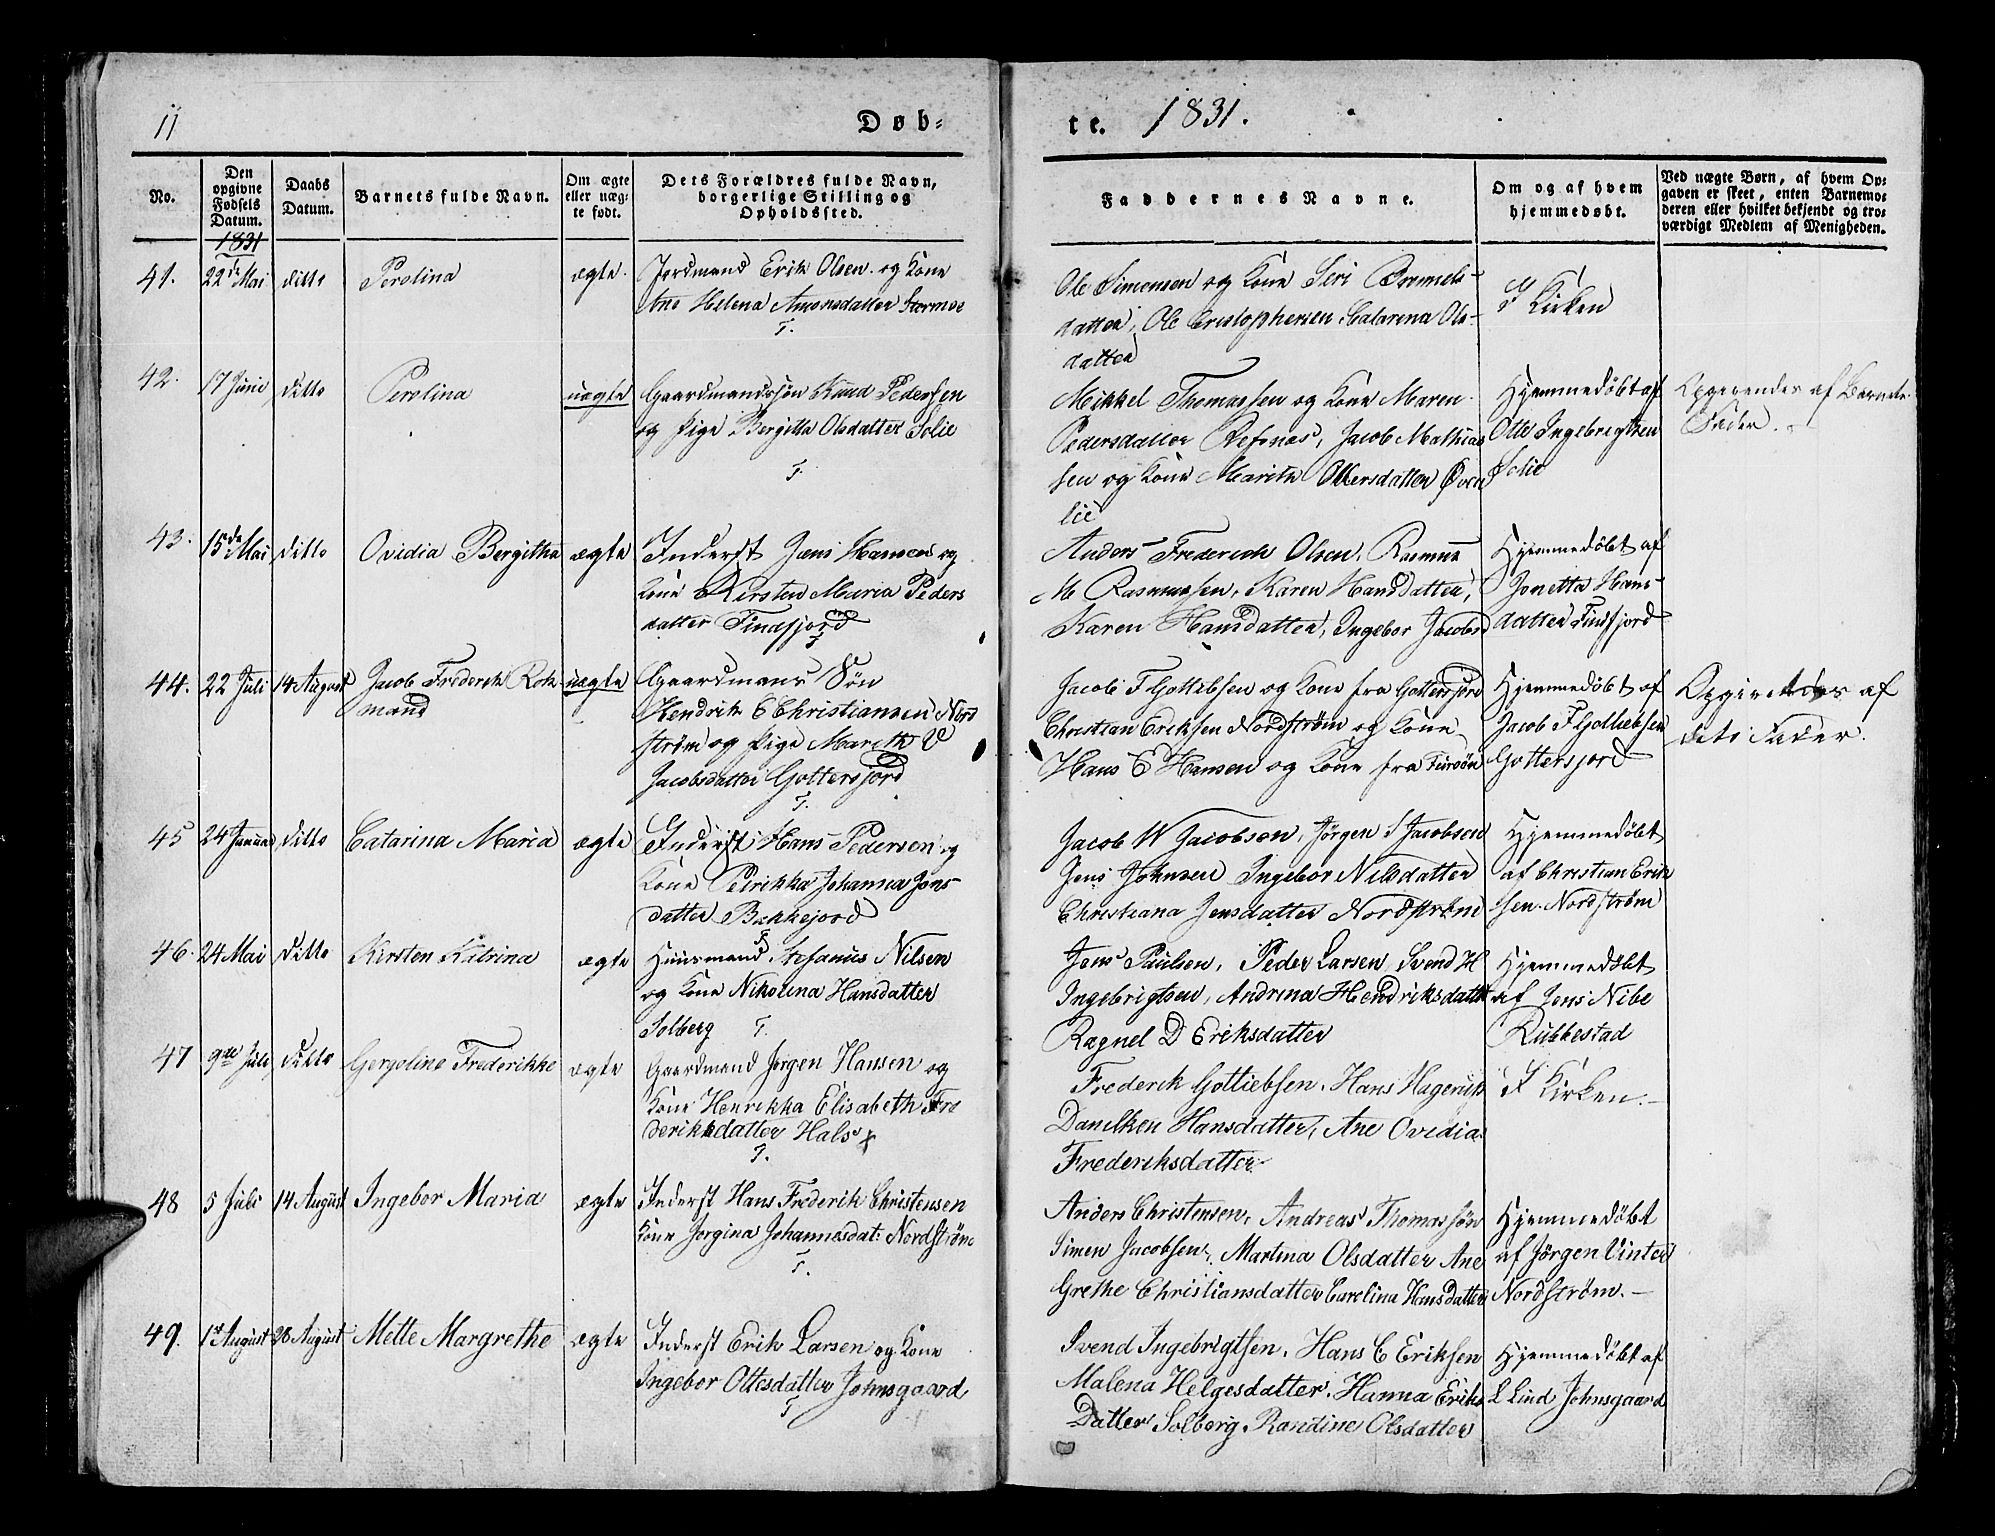 11
Døb-
te. 1831.
No.
Den opgivne Fødsels Datum.
Daabs Datum.
Barnets fulde Navn.
Om ægte eller uægte født.
Dets Forældres fulde Navn, borgerlige Stilling og Opholdssted.
Faddernes Navne.
Om og af hvem hjemmedøbt.
Ved uægte Børn, af hvem Opgaven er skeet, enten Barnemoderen eller hvilket bekjendt og troværdigt Medlem af Menigheden.
1831
41. 22de Mai ditto Perolina ægte. Jordmand Erik Olsen og Kone
Ane Helena Amonsdatter Stormoe
T.
Ole Simensen og Kone Seri
datter, Ole Cristophersen, Catarina Ols-
datter
I Kirken
42. 17 Junie ditto Perolina uægte Gaardmandssøn Knud Pedersen
og Pige Bergitta Olsdatter Solie
T.
Mikkel Thomassen og Kone Maren
Pedersdatter Refsnes, Jacob Mathias
sen og Kone Marith Ottersdatter Øven
lie
Hjemmedøbt af
Otte Ingebrigtsen
Solie
Opgivendes af Barnets
Fader.
43. 15de Mai ditto Ovidia Bergitha ægte Inderst Jens Hansen og
Kone Kirsten Maria Peders
datter Findfjord
T
Anders Frederich Olsen, Rasmus
M Rasmussen, Karen Hansdatter,
Karen Hansdatter, Ingebor Jacobsd
Hjemmedøbt af
Jonetta Hans-
datter Findfjord
44. 22 Juli 14 August Jacob Frederik Rok
mand
uægte Gaardmans Søn
Hendrik C Christiansen Nord
strøm og Pige Mareth V
Jacobsdatter Gottersjord
T.
Jacob F Gottliebsen og Kone fra Gottersjord
Christian Eriksen Nordstrøm og Kone
Hans E Hansen og Kone fra
Hjemmedøbt af
Jacob F Gottliebsen
Gottersjord
Opgivendes af
dets Fader.
45 24 Januar ditto Catarina Maria ægte Inderst Hans Pedersen og
Kone Petrikka Johanna Jons-
datter Bakkejord
T
Jacob W Jacobsen, Jörgen S Jacobsen
Jens Johnsen Ingebor Nilsdatter
Christiana Jensdatter Nordstrøm
Hjemmedøbt
af Christian Erik
sen Nordstrøm
46. 24 Mai ditto Kirsten Katrina ægte Huusmand Stefanus Nilsen
og Kone Nikolina Hansdatter
Solberg T.
Jens Paulsen, Peder Larsen, Svend H
Ingebrigtsen, Andrina Hendriksdatter
Ragnel D Eriksdatter
Hjemmedøbt
af Jens Nibe
Rubbestad
47 9de Juli ditto Gergoline Frederikke ægte Gaardmand Jørgen Hansen og
Kone Henrikka Elisabeth Fre
deriksdatter Hals
T.
Frederik Gottliebsen, Hans Hagerup
Danelken Hansdatter, Ane Ovidia
Frederiksdatter
I Kirken.
48 5 Juli 14 August Ingebor Maria ægte Inderst Hans Frederik Christensen
Kone Jorgina Johannesdat: Nordstrøm
T.
Anders Christensen, Andreas Thomassøn
Simen Jacobsen, Martina Olsdatter Ane
Grethe Christiansdatter Carolina Hansdatter
Hjemmedøbt
af Jörgen Vinter
Nordstrøm.
49. 1st August 28 August Mette Margrethe ægte Inderst Erik Larsen og Kone
Ingebor Ottesdatter Johnsgaard
T
Svend Ingebrigtsen, Hans C Eriksen
Malena Helgesdatter, Hanna Eriks
Datter Solberg, Randine Olsdatter
Hjemmedøbt af
L Lind Johnsgaard